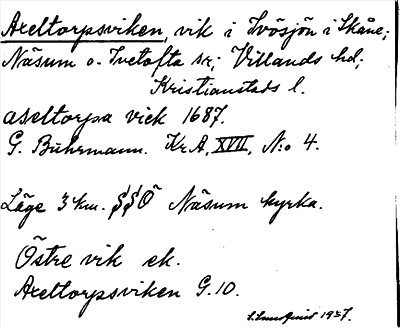 Axeltorpsviken, vik i Ivösjön i Skåne;
Näsum o. Ivetofta sr; Villands hd;
Kristianstads l.
aseltorpa vick 1687.
G. Buhrmann. Kr A, XVII, N:o 4.
Läge 3 km. S§Ö Näsum kyrka.
Östre vik ek.
Axeltorpsviken G. 10.
1937.